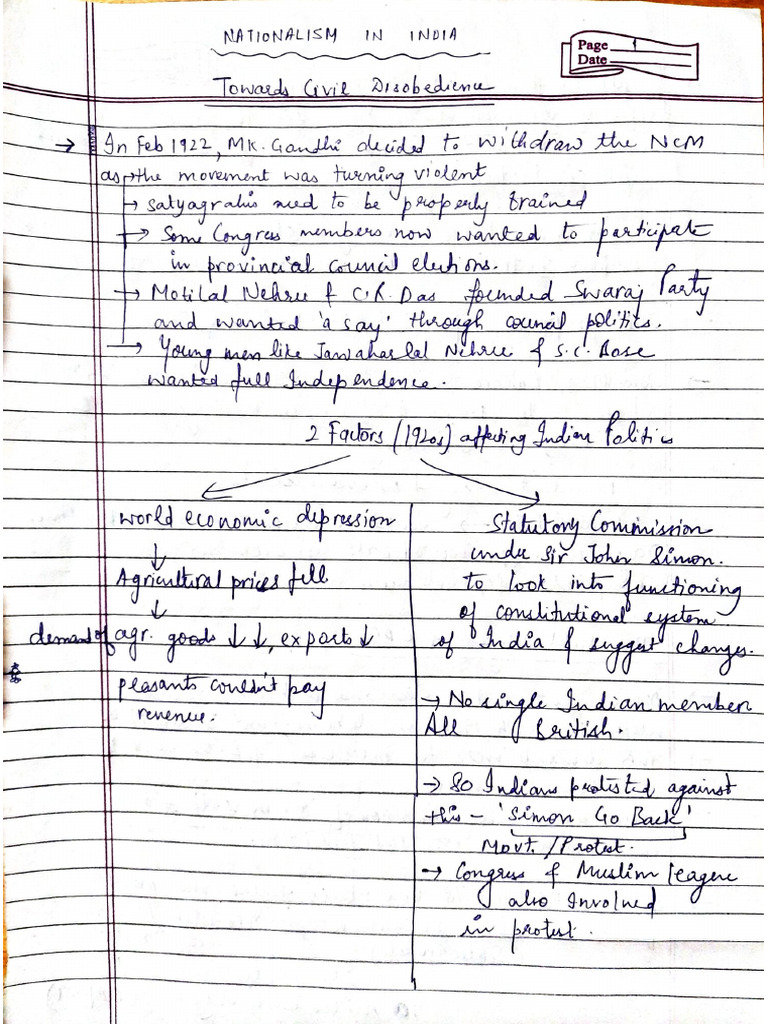 NATIONALISM IN INDIA
Page 1
Date
Towards Civil Disobedience
→ In Feb 1922, MK. Gandhi decided to withdraw the NCM
as → the movement was turning violent
→ satyagrahis need to be properly trained
→ Some Congress members now wanted to participate
in provincial council elections.
→ Motilal Nehru & C.R. Das founded Swaraj Party
and wanted 'a say' through council politics.
→ Young men like Jawaharlal Nehru & S.C. Bose
wanted full Independence.
2 Factors (1920s) affecting Indian Politics
world economic depression
↓
Agricultural prices fell
↓
demand of agr. goods ↓ ↓, exports ↓
peasants couldn't pay
revenue.
Statutory Commission
under Sir John Simon.
to look into functioning
of constitutional system
of India & suggest changes.
→ No single Indian member
All British.
→ So Indians protested against
this - 'Simon Go Back'
Movt. / Protest.
→ Congress & Muslim league
also Involved
in protest.